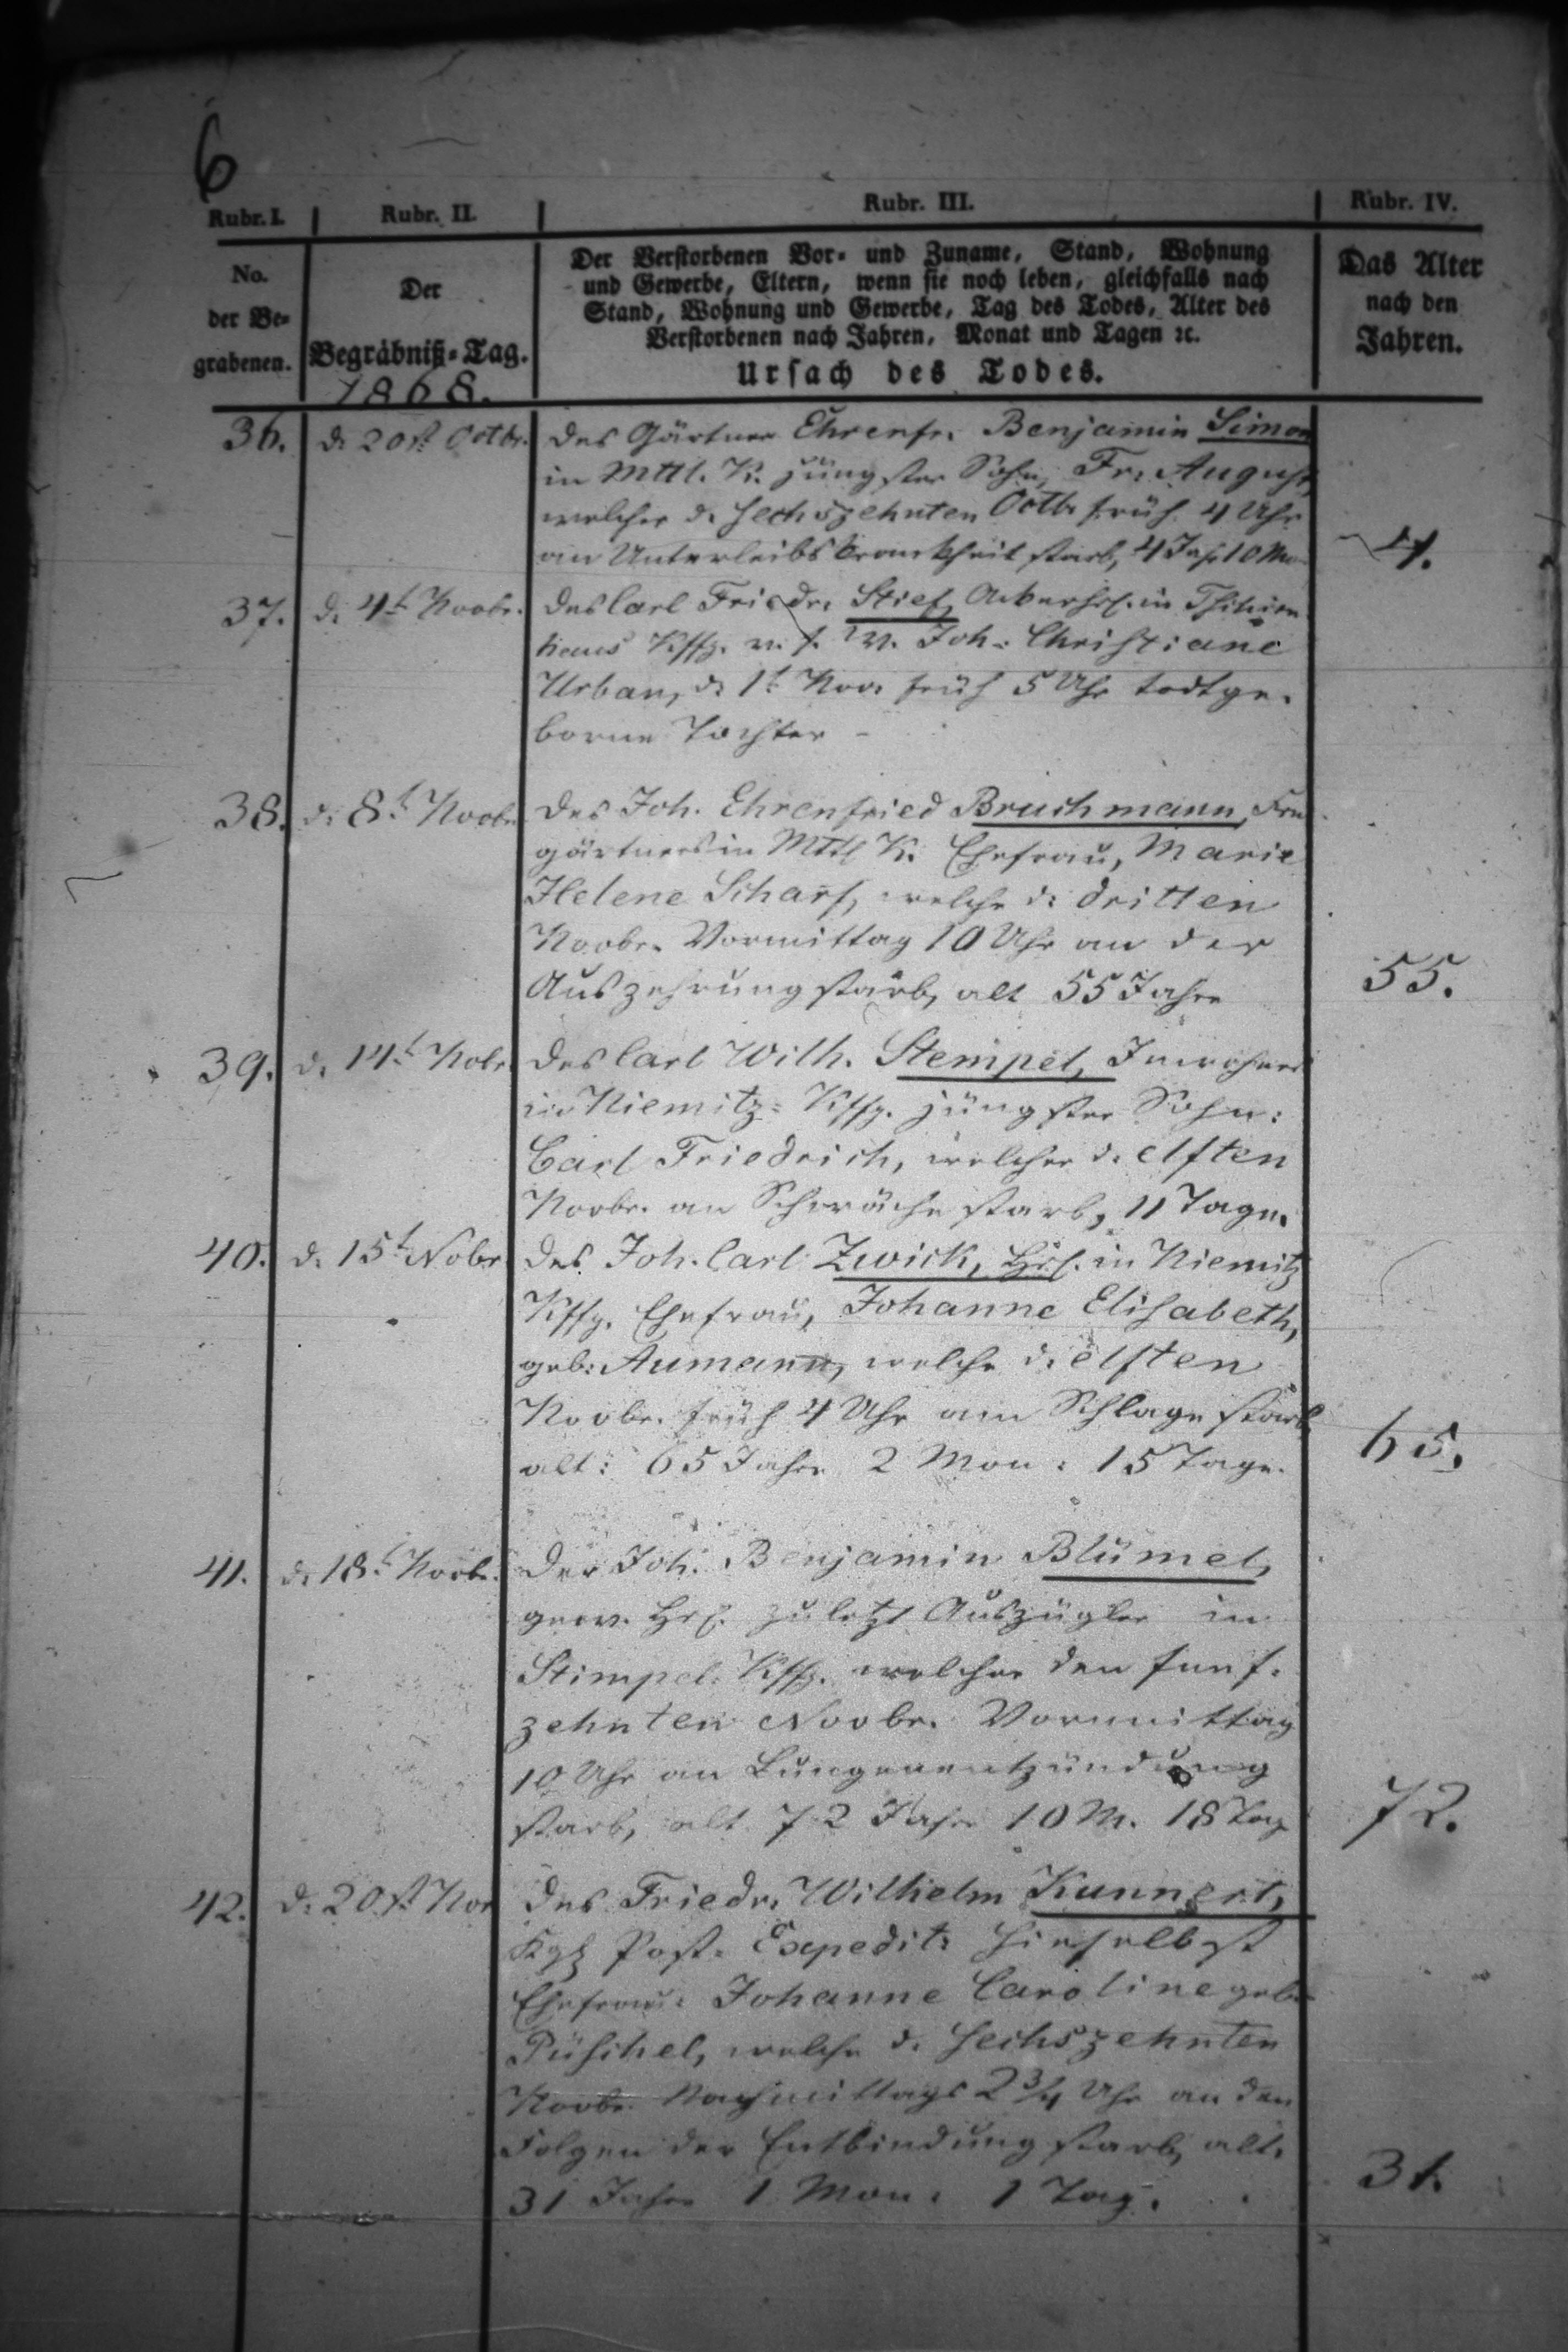 6
Rubr. I. Rubr. II. Rubr. III. Rubr. IV.
No. der Be- grabenen.
Der Begräbniß-Tag.
1868.
Der Verstorbenen Vor- und Zuname, Stand, Wohnung
und Gewerbe, Eltern, wenn sie noch leben, gleichfalls nach
Stand, Wohnung und Gewerbe, Tag des Todes, Alter des
Verstorbenen nach Jahren, Monat und Tagen ꝛc.
Ursach des Todes.
Das Alter
nach den
Jahren.
36. d. 20st. Octbr. Des Gärtner Ehrenfr. Benjamin Simon
in Mttl. K. jüngster Sohn, Fr. August,
welcher d. sechszehnten Octb. früh 4 Uhr
an Unterleibskrankheit starb, 4 Jahr 10 Mo 4.
37. d. 4t. Novbr. Des Carl Friedr. Stief, Ackerhsl. in
haus Kffg. u. s. W. Joh. Christiane
Urban, d. 1t Nov. früh 5 Uhr todtge-
borne Tochter -
38. d. 8t. Novbr. Des Joh. Ehrenfried Bruchmann,
gärtners in Mttl K. Ehefrau, Marie
Helene Scharf, welche d. dritten
Novbr. Vormittag 10 Uhr an der
Auszehrung starb, alt 55 Jahre 55.
39. d. 14t. Nobr. Des Carl Wilh. Stempel, Inwohner
in Niemitz-Kffg. jüngster Sohn:
Carl Friedrich, welcher d. elften
Novbr. an Schwäche starb, 11 Tage.
40. d. 15t. Nobr. Des Joh. Carl Zwick, Hsl. in Niemitz
Kffg. Ehefrau, Johanne Elisabeth,
geb. Aumann, welche d. elften
Novbr. früh 4 Uhr am Schlage starb
alt: 65 Jahre 2 Mon: 15 Tage. 65.
41. d. 18t. Novbr. Der Joh. Benjamin Blümel,
gew. Hsl. zuletzt Auszügler in
Stimpel-Kffg. welcher den funf-
zehnten Novbr. Vormittag
10 Uhr an Lungenentzündung
starb, alt 72 Jahre 10 M. 18 Tag 72.
42. d. 20st. Nov Des Friedr. Wilhelm Kunnert,
Kgl Post-Expedit. hieselbst
Ehefrau: Johanne Caroline geb.
Püschel, welche d. sechszehnten
Novbr. Nachmittags 2 3/4 Uhr an den
Folgen der Entbindung starb, alt.
31 Jahre 1 Mon. 1 Tag. 31.